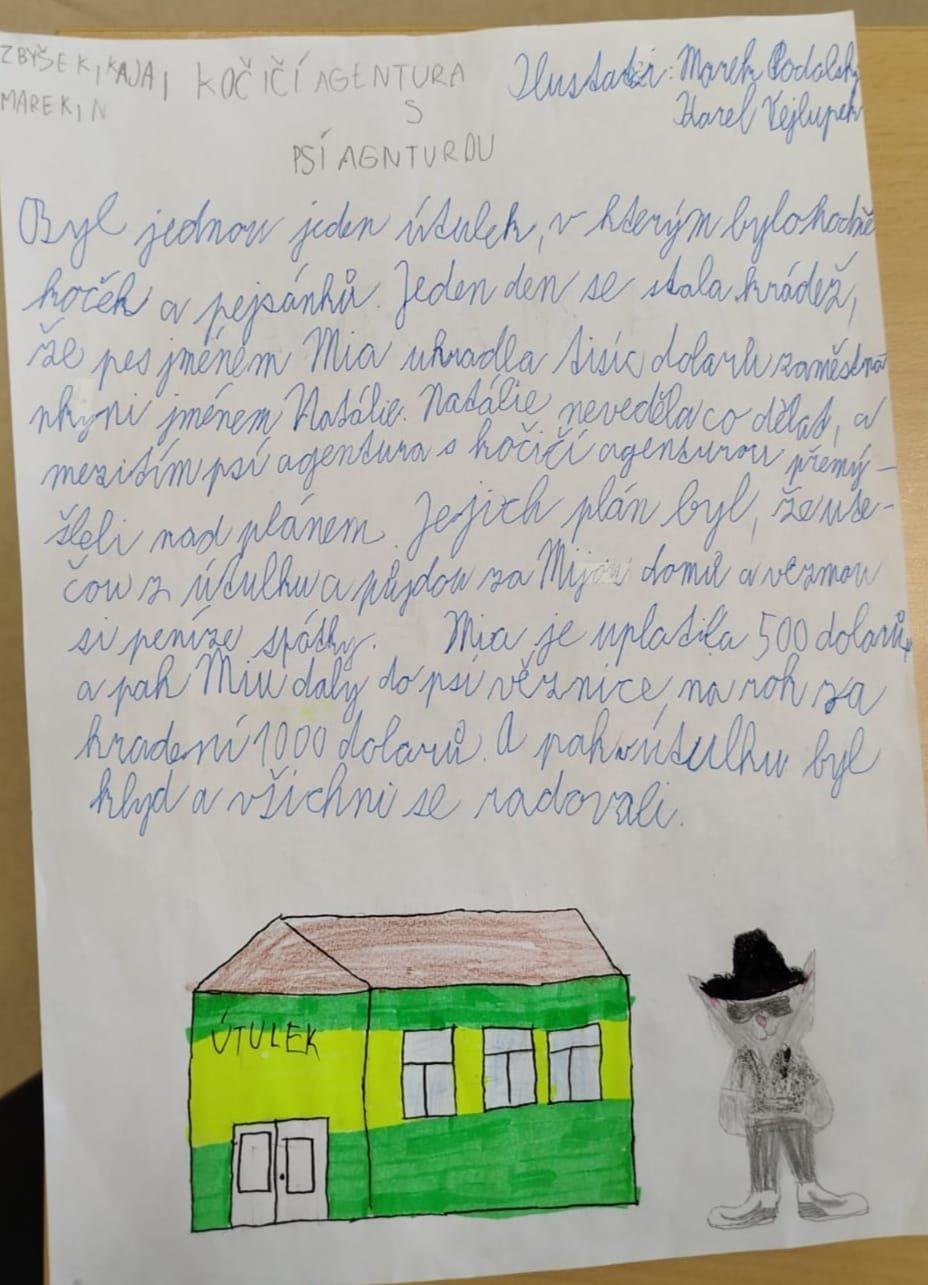 ZBYŠEK, KAJA,
MAREK, N
KOČIČÍ AGENTURA
S
PSÍ AGNTUROU
Ilustátři: Marek Podolský
Karel Vejlupek
Byl jednou jeden útulek, v kterým bylo hodně
koček a pejsánků. Jeden den se stala krádež,
že pes jménem Mia ukradla tisíc dolarů zaměstna
nkyni jménem Natálie. Natálie nevěděla co dělat, a
mezitím psí agentura s kočičí agenturou přemý-
šleli nad plánem. Jejich plán byl, že ute-
čou z útulku a půjdou za Mijou domů a vezmou
si peníze spátky. Mia je uplatila 500 dolarů,
a pak Miu daly do psí věznice, na rok za
kradení 1000 dolarů. A pak v útulku byl
klyd a všichni se radovali.
ÚTULEK